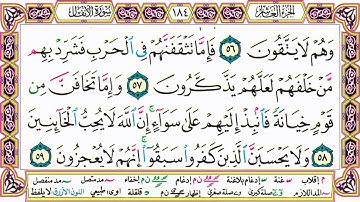 الجزء العاشر ١٨٤ سورة الأنفال
وَهُمْ لَا يَتَّقُونَ ٥٦ فَإِمَّا تَثْقَفَنَّهُمْ فِي الْحَرْبِ فَشَرِّدْ بِهِم
مَّنْ خَلْفَهُمْ لَعَلَّهُمْ يَذَّكَّرُونَ ٥٧ وَإِمَّا تَخَافَنَّ مِن
قَوْمٍ خِيَانَةً فَانبِذْ إِلَيْهِمْ عَلَىٰ سَوَاءٍ ۚ إِنَّ اللَّهَ لَا يُحِبُّ الْخَائِنِينَ
٥٨ وَلَا يَحْسَبَنَّ الَّذِينَ كَفَرُوا سَبَقُوا ۚ إِنَّهُمْ لَا يُعْجِزُونَ ٥٩